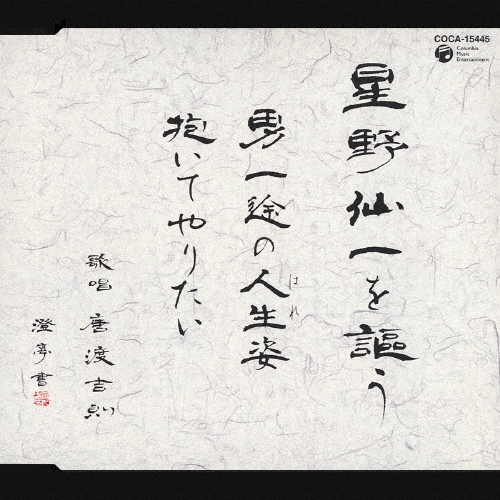 COCA-15445
Columbia
Music
Entertainment
星野仙一を謳う
男一途の人生姿
はれ
抱いてやりたい
歌唱 唐渡吉則
澄亭書